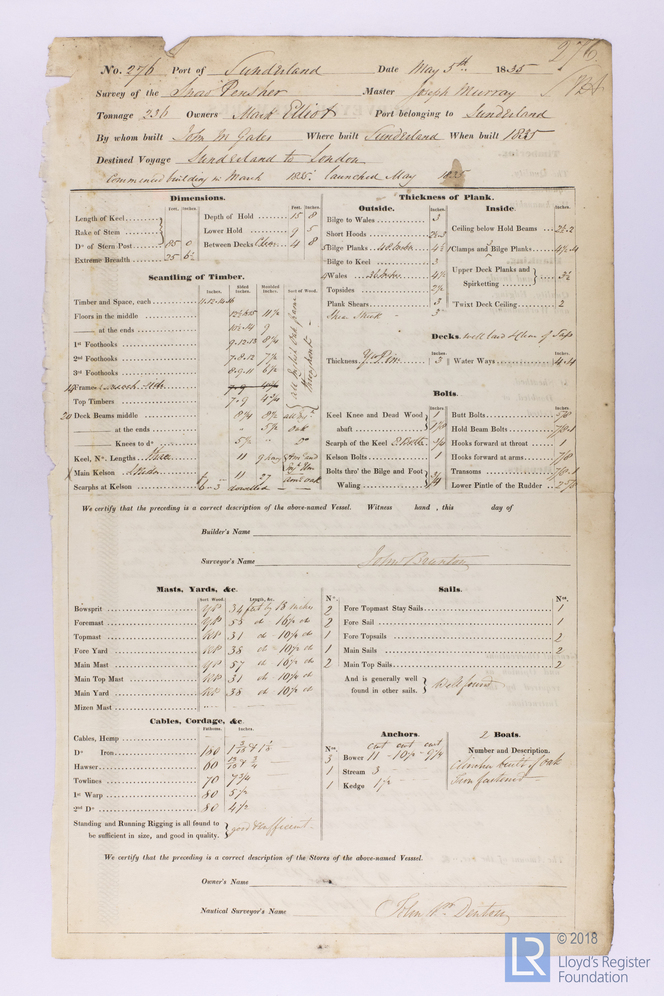 276
No. 276 Port of Sunderland Date May 5th 1835
Survey of the Snow Pensher Master Joseph Murray
Tonnage 236 Owners Mark Elliot Port belonging to Sunderland
By whom built John M Gales Where built Sunderland When built 1835
Destined Voyage Sunderland to London
Commenced building in March 1835. launched May 1835
Dimensions.
Feet. Inches.
Length of Keel
Rake of Stem
Do of Stern Post 85 0
Extreme Breadth 25 6½
Feet. Inches.
Depth of Hold 15 8
Lower Hold 9 5
Between Decks 4 8
Thickness of Plank.
Outside. Inches.
Bilge to Wales 3
Short Hoods 2½-3
Bilge Planks 4½
Bilge to Keel 3
Wales 4½
Topsides 2½
Plank Shears 3
Sheer Strak 3
Inside. Inches.
Ceiling below Hold Beams 2½-2
Clamps and Bilge Planks 4½-4
Upper Deck Planks and Spirketting 3½
'Twixt Deck Ceiling 2
Scantling of Timber.
Inches. Sided Inches. Moulded Inches. Sort of Wood.
Timber and Space, each
Floors in the middle 11½
at the ends 9
1st Foothooks 9-12-13 8¼
2nd Foothooks 7-8-12 7½
3rd Foothooks 8-9-11 6½
Frames
Top Timbers 7-9 4¾
20 Deck Beams middle 8¾ 8½
at the ends " 5½ oak
Knees to do 5½ " Do
Keel, No. Lengths Three 11
Main Kelson 11 27
Scarphs at Kelson 6-3
Decks. well laid & clean of Saps
Thickness, Yw Pine 3
Water Ways 4-4
Bolts.
Inches.
Keel Knee and Dead Wood abaft 1
Scarph of the Keel 2 Bolts ¾
Kelson Bolts 1
Bolts thro' the Bilge and Foot Waling
Inches.
Butt Bolts 5/8
Hold Beam Bolts 7/8-1
Hooks forward at throat 1
Hooks forward at arms 7/8
Transoms 7/8-1
Lower Pintle of the Rudder
We certify that the preceding is a correct description of the above-named Vessel. Witness hand , this day of
Builder's Name
Surveyor's Name John Brunton
Masts, Yards, &c.
Sort. Wood. Length, &c.
Bowsprit YP 34 feet by 18 inches
Foremast YP 53 do - 16½ do
Topmast WP 31 do - 10½ do
Fore Yard WP 38 do - 10½ do
Main Mast YP 57 do - 16½ do
Main Top Mast WP 31 do - 10½ do
Main Yard WP 38 do - 10½ do
Mizen Mast
Sails.
No. Nos.
2 Fore Topmast Stay Sails 1
2 Fore Sail 1
1 Fore Topsails 2
1 Main Sails 2
2 Main Top Sails 2
And is generally well found in other sails. Well found
Cables, Cordage, &c.
Fathoms. Inches.
Cables, Hemp
Do Iron 180
Hawser 60
Towlines 70 7¾
1st Warp 80 5½
2nd Do 80 4½
Standing and Running Rigging is all found to be sufficient in size, and good in quality. good & sufficient
Anchors.
Nos. cwt cwt cwt
3 Bower 11 - 10½ - 9¾
1 Stream 3
1 Kedge 1½
2 Boats.
Number and Description.
Clincher built of oak
Iron fastened
We certify that the preceding is a correct description of the Stores of the above-named Vesssel.
Owner's Name
Nautical Surveyor's Name John Wm Denton
LR
© 2018
Lloyd's Register
Foundation